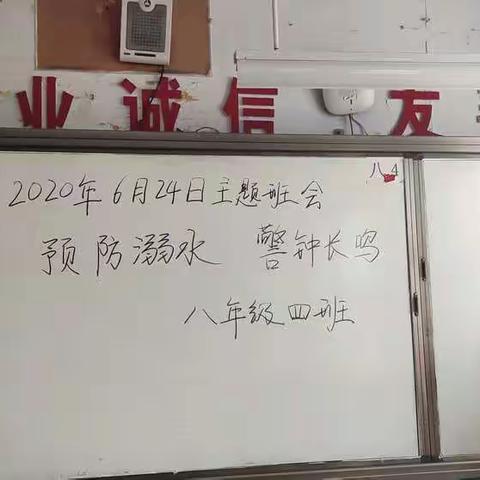 业 诚信 友
八.4
2020年6月24日主题班会
预防溺水 警钟长鸣
八年级四班